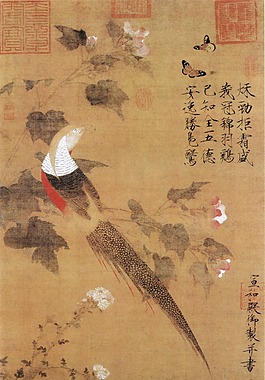 秋勁拒霜盛
峩冠錦羽鷄
已知全五德
安逸勝鳬鷖
宣和殿御製并書